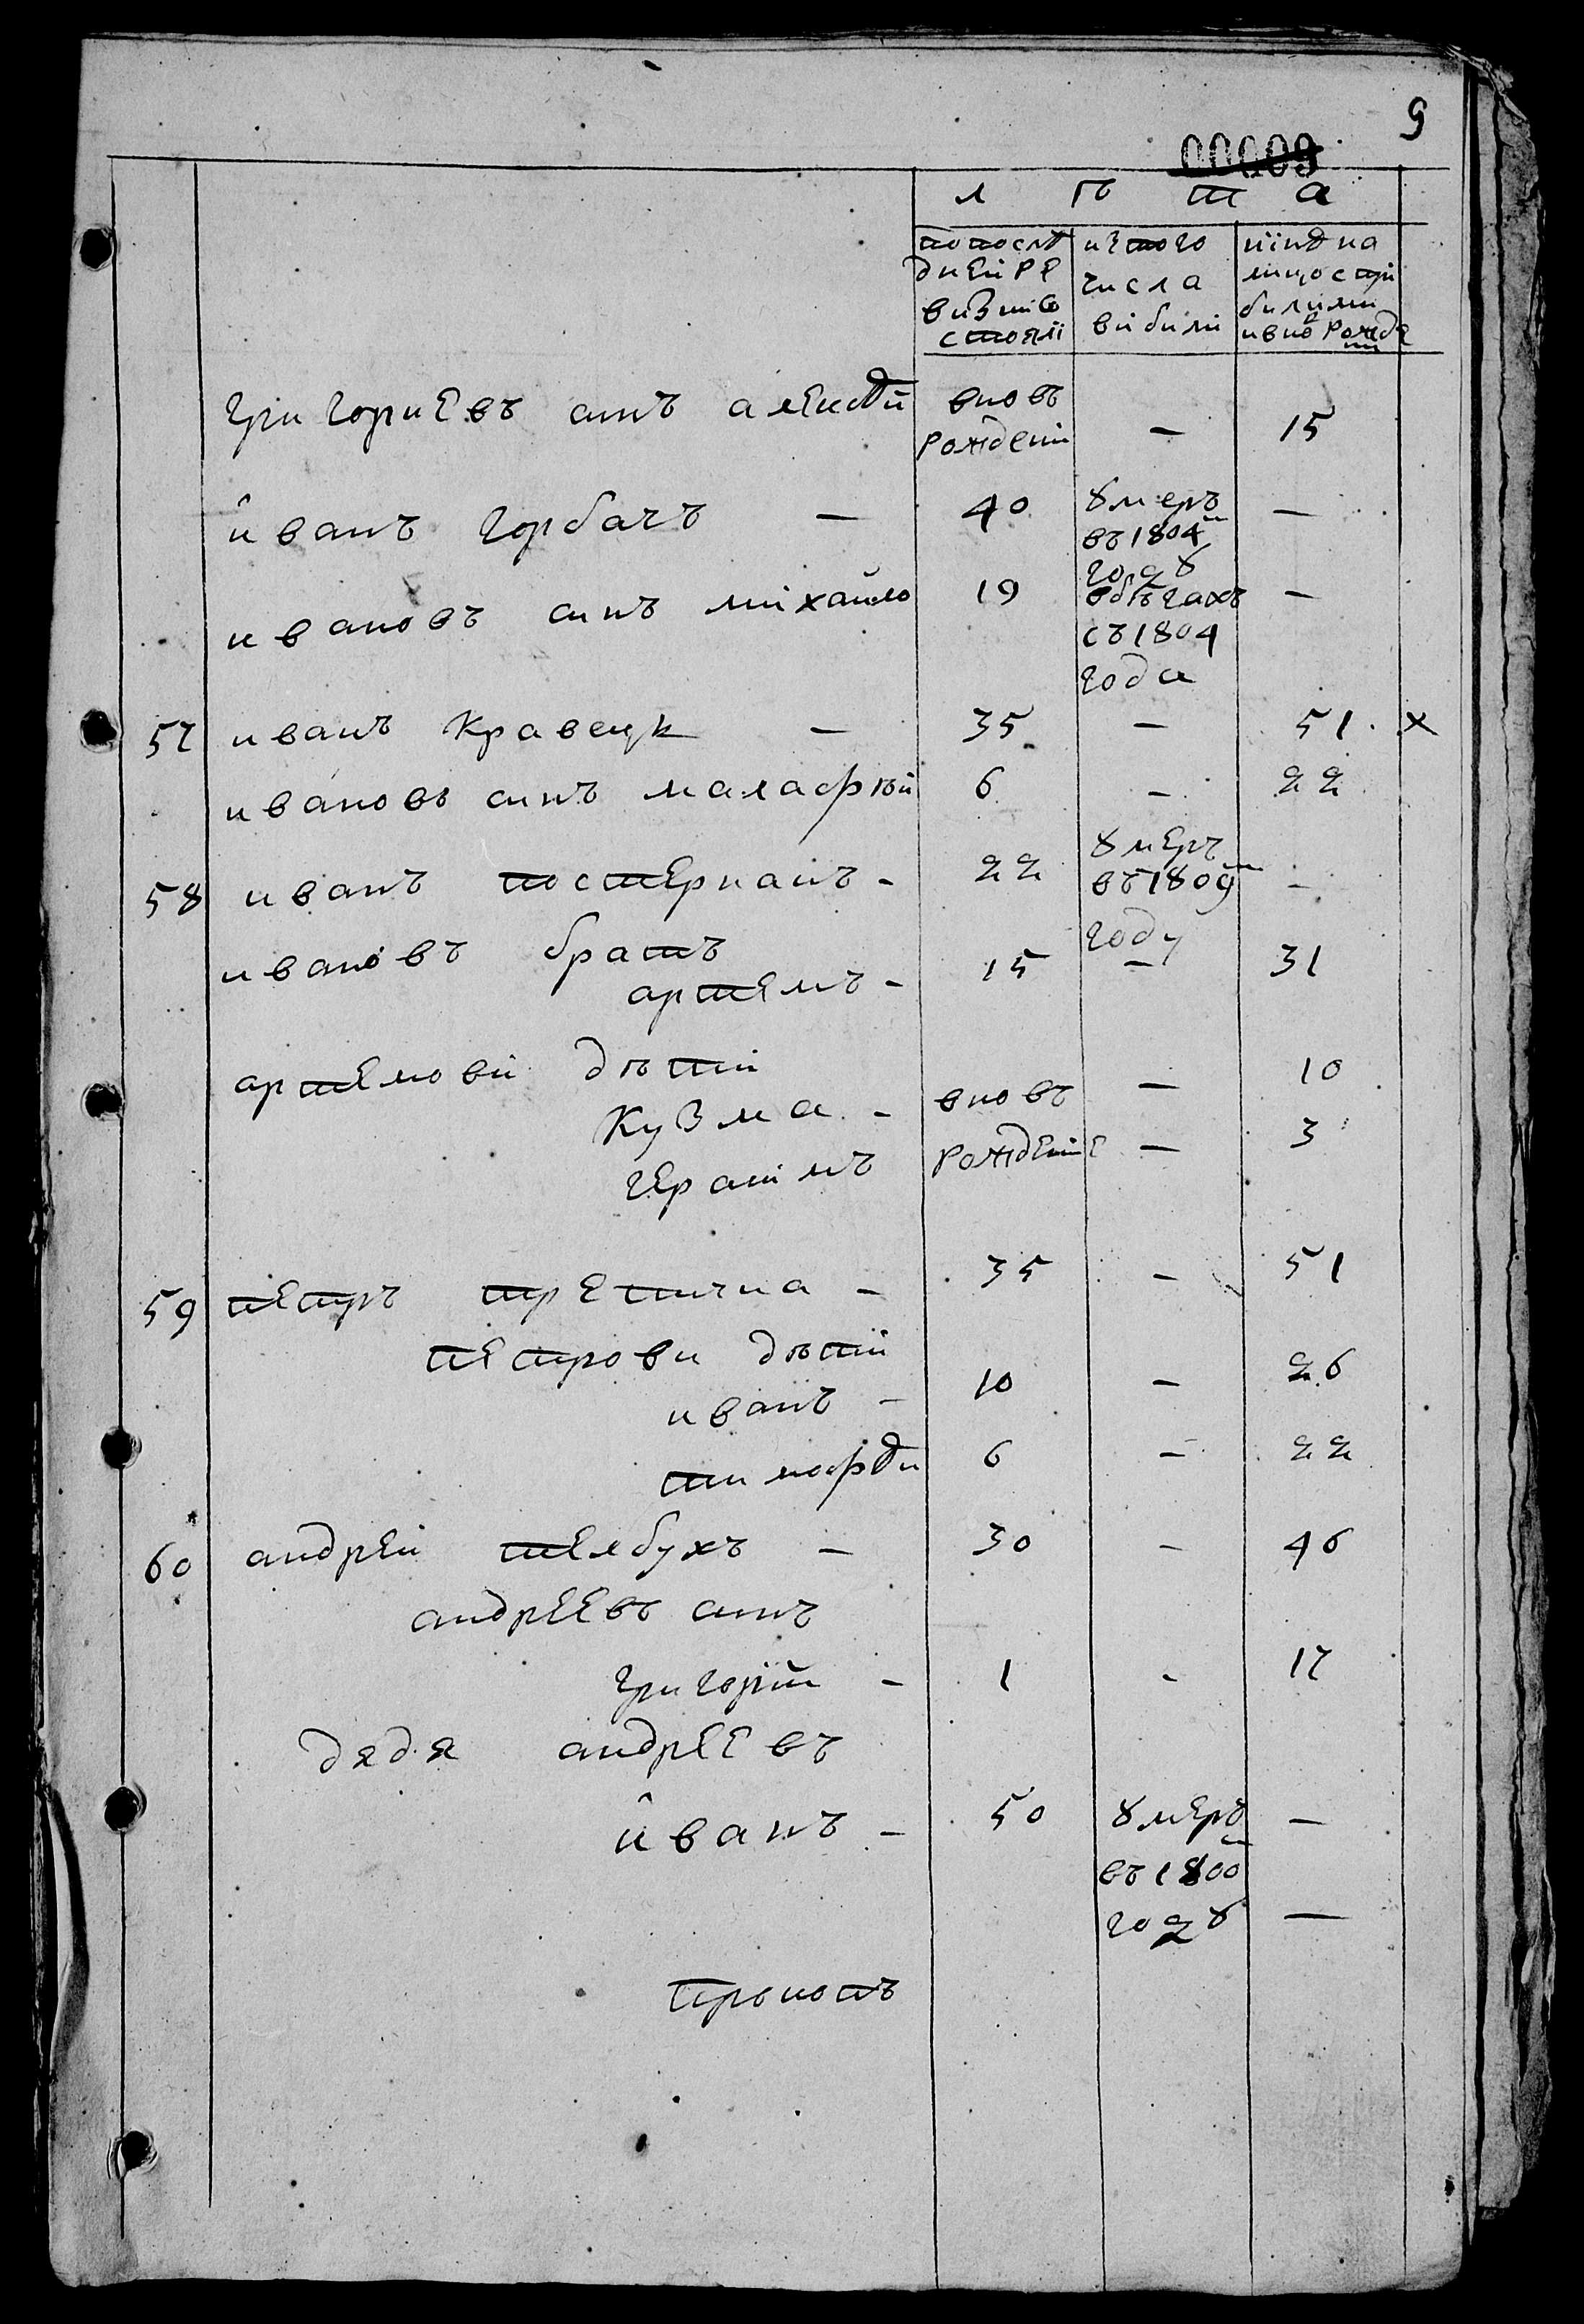 9
00009
л ѣ т а
по послѣ
дней ре
визии со
стояли
ис того
числа
вибили
ниндна
лицостуи
билими
и внов рожде
ни
григориевъ синъ алексѣй вновь
рождени — 15
иванъ горбачъ — 40 умеръ
въ 1804м
году —
ивановъ синъ михайло 19 в бѣгахъ
съ 1804
года —
57 иванъ Кравецъ — 35 — 51 х
ивановъ синъ малафѣй 6 — 22
58 иванъ постернакъ - 22 умеръ
въ 1809м
году —
ивановъ братъ
артемъ - 15 — 31
артемови дѣти
Кузма - вновь — 10
герасимъ рождение — 3
59 петръ третичка - 35 — 51
петрови дѣти
иванъ - 10 — 26
тимофѣй 6 — 22
60 андрей телбухъ — 30 — 46
андреевъ синъ
григорий - 1 - 17
дядя андреевъ
иванъ - 50 умеръ —
въ 1800м
году —
прокопъ